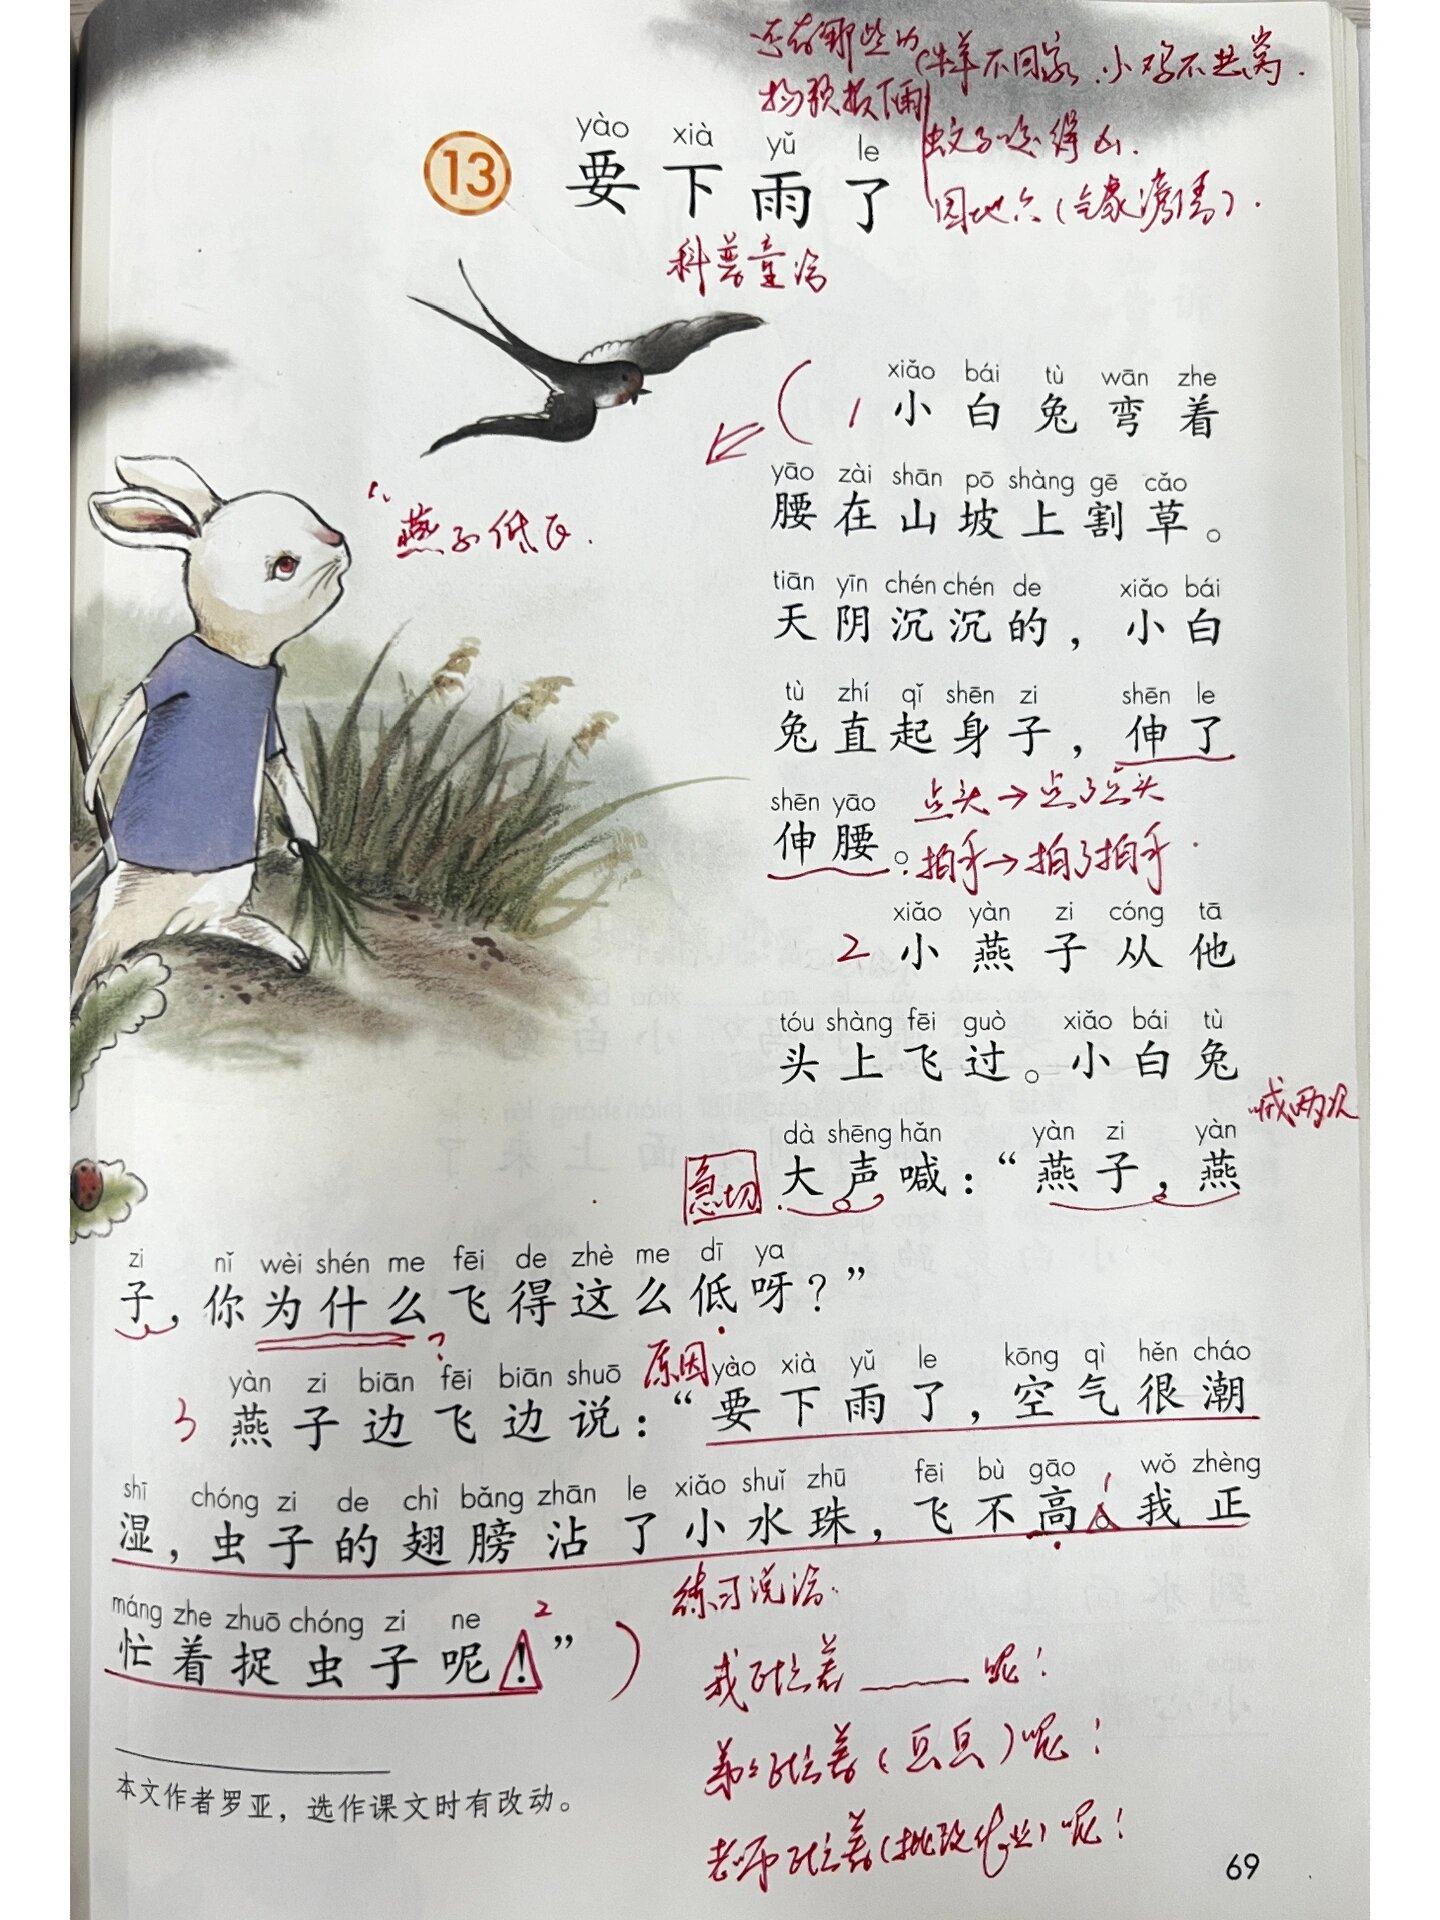 还有哪些动
物预报下雨
牛羊不回家、小鸡不进窝.
蚊子咬得凶.
园地六(气象谚语).
yào xià yǔ le
13 要下雨了
科普童话
xiǎo bái tù wān zhe
1 小白兔弯着
yāo zài shān pō shàng gē cǎo
腰在山坡上割草。
1、
燕子低飞.
tiān yīn chén chén de xiǎo bái
天阴沉沉的，小白
tù zhí qǐ shēn zi shēn le
兔直起身子，伸了
shēn yāo
伸腰。
点头→点了点头
拍手→拍了拍手
xiǎo yàn zi cóng tā
2 小燕子从他
tóu shàng fēi guò xiǎo bái tù
头上飞过。小白兔
喊两次
dà shēng hǎn yàn zi yàn
急切 大声喊：“燕子，燕
zi nǐ wèi shén me fēi de zhè me dī ya
子，你为什么飞得这么低呀？”
?
原因
yàn zi biān fēi biān shuō yào xià yǔ le kōng qì hěn cháo
3 燕子边飞边说：“要下雨了，空气很潮
shī chóng zi de chì bǎng zhān le xiǎo shuǐ zhū fēi bù gāo wǒ zhèng
湿，虫子的翅膀沾了小水珠，飞不高。我正
1
máng zhe zhuō chóng zi ne
忙着捉虫子呢！”
2
练习说话.
我正忙着____呢！
弟弟正忙着( )呢！
老师正忙着(批改作业)呢！
本文作者罗亚，选作课文时有改动。
69